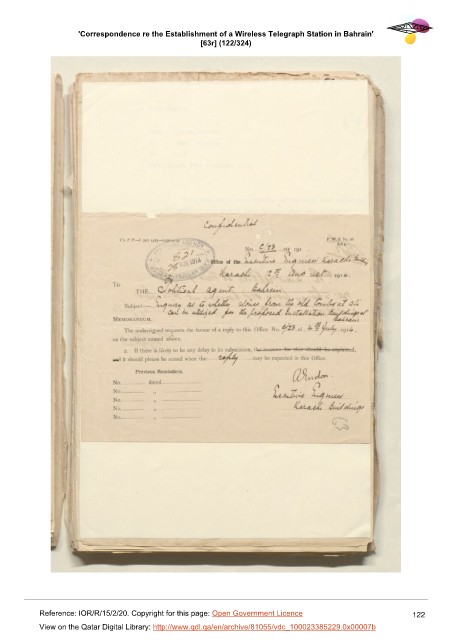 'Correspondence re the Establishment of a Wireless Telegraph Station in Bahrain'
[63r] (122/324)
Confidential
No. C/28 of 191
Office of the Executive Engineer Karachi Buildings
Karachi 12th August 1914.
621
1914
To
THE Political Agent Bahrein
Subject:— Enquiry as to whether stones from the old tombs at
can be utilized for the proposed Installation Buildings at
Bahrein
MEMORANDUM.
The undersigned requests the favour of a reply to this Office No. C/23 d. 4th July 1914.
on the subject named above.
2. If there is likely to be any delay in its submission, the reasons for this should be explained,
and it should please be stated when the reply may be expected in this Office.
Previous Reminders.
No. dated
No. „
No. „
No. „
No. „
Executive Engineer
Karachi Buildings
Reference: IOR/R/15/2/20. Copyright for this page: Open Government Licence
View on the Qatar Digital Library: http://www.qdl.qa/en/archive/81055/vdc_100023385229.0x00007b
122